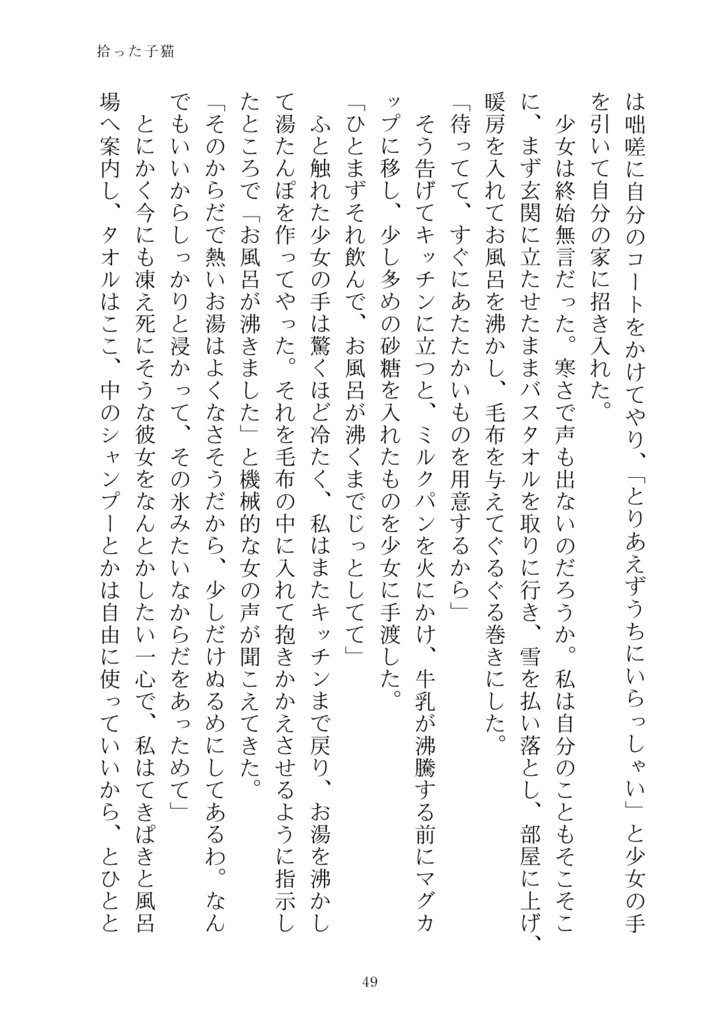 拾った子猫
は咄嗟に自分のコートをかけてやり、「とりあえずうちにいらっしゃい」と少女の手
を引いて自分の家に招き入れた。
　少女は終始無言だった。寒さで声も出ないのだろうか。私は自分のこともそこそこ
に、まず玄関に立たせたままバスタオルを取りに行き、雪を払い落とし、部屋に上げ、
暖房を入れてお風呂を沸かし、毛布を与えてぐるぐる巻きにした。
「待ってて、すぐにあたたかいものを用意するから」
　そう告げてキッチンに立つと、ミルクパンを火にかけ、牛乳が沸騰する前にマグカ
ップに移し、少し多めの砂糖を入れたものを少女に手渡した。
「ひとまずそれ飲んで、お風呂が沸くまでじっとしてて」
　ふと触れた少女の手は驚くほど冷たく、私はまたキッチンまで戻り、お湯を沸かし
て湯たんぽを作ってやった。それを毛布の中に入れて抱きかかえさせるように指示し
たところで「お風呂が沸きました」と機械的な女の声が聞こえてきた。
「そのからだで熱いお湯はよくなさそうだから、少しだけぬるめにしてあるわ。なん
でもいいからしっかりと浸かって、その氷みたいなからだをあっためて」
　とにかく今にも凍え死にそうな彼女をなんとかしたい一心で、私はてきぱきと風呂
場へ案内し、タオルはここ、中のシャンプーとかは自由に使っていいから、とひとと
49